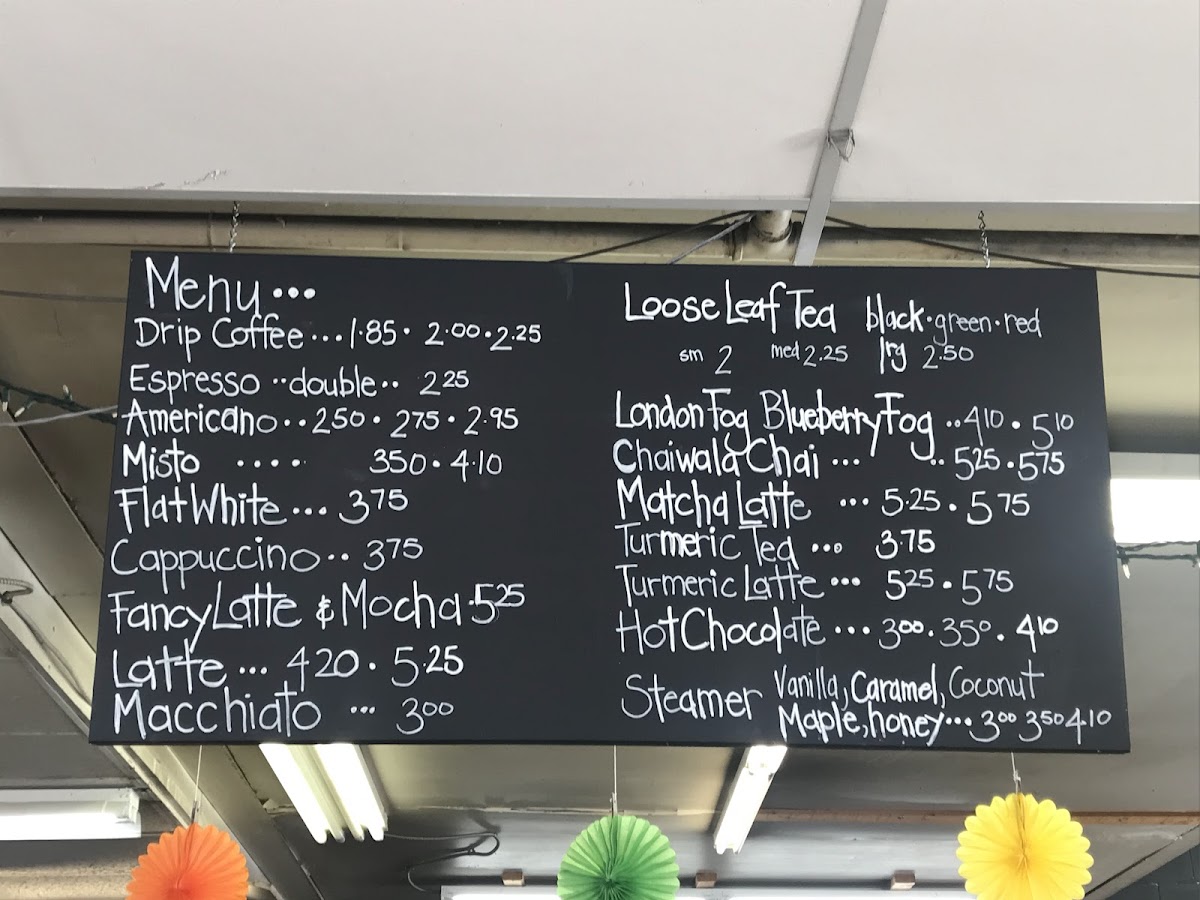 Menu...
Drip Coffee...1.85. 2.00.2.25
Espresso ..double.. 2 25
Americano..250.275.2.95
Misto .... 350.4.10
Flat White...375
Cappuccino..375
Fancy Latte & Mocha.525
Latte...420.5.25
Macchiato ... 300
Loose Leaf Tea black.green.red
sm 2 med 2.25 lrg 2.50
London Fog Blueberry Fog ..410.510
Chaiwala Chai ... ..525.575
Matcha Latte ...5.25.575
Turmeric Tea ... 3.75
Turmeric Latte... 525.575
Hot Chocolate...300.350.410
Steamer Vanilla, Caramel, Coconut
Maple, honey...300 350 4.10